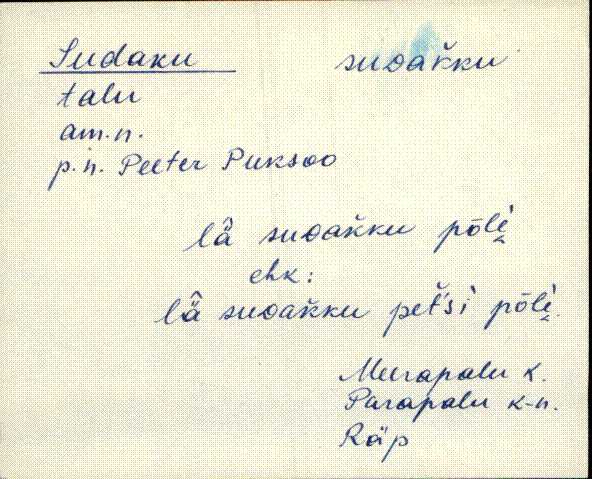 Sudaku suᴅak̆ku
talu
am.n.
p.n. Peeter Puksoo
lä̂ suᴅak̆ku pōli̬
ehk:
lä̂ suᴅak̆ku pet̆śi pōli̬.
Meerapalu k.
Parapalu k-n.
Räp